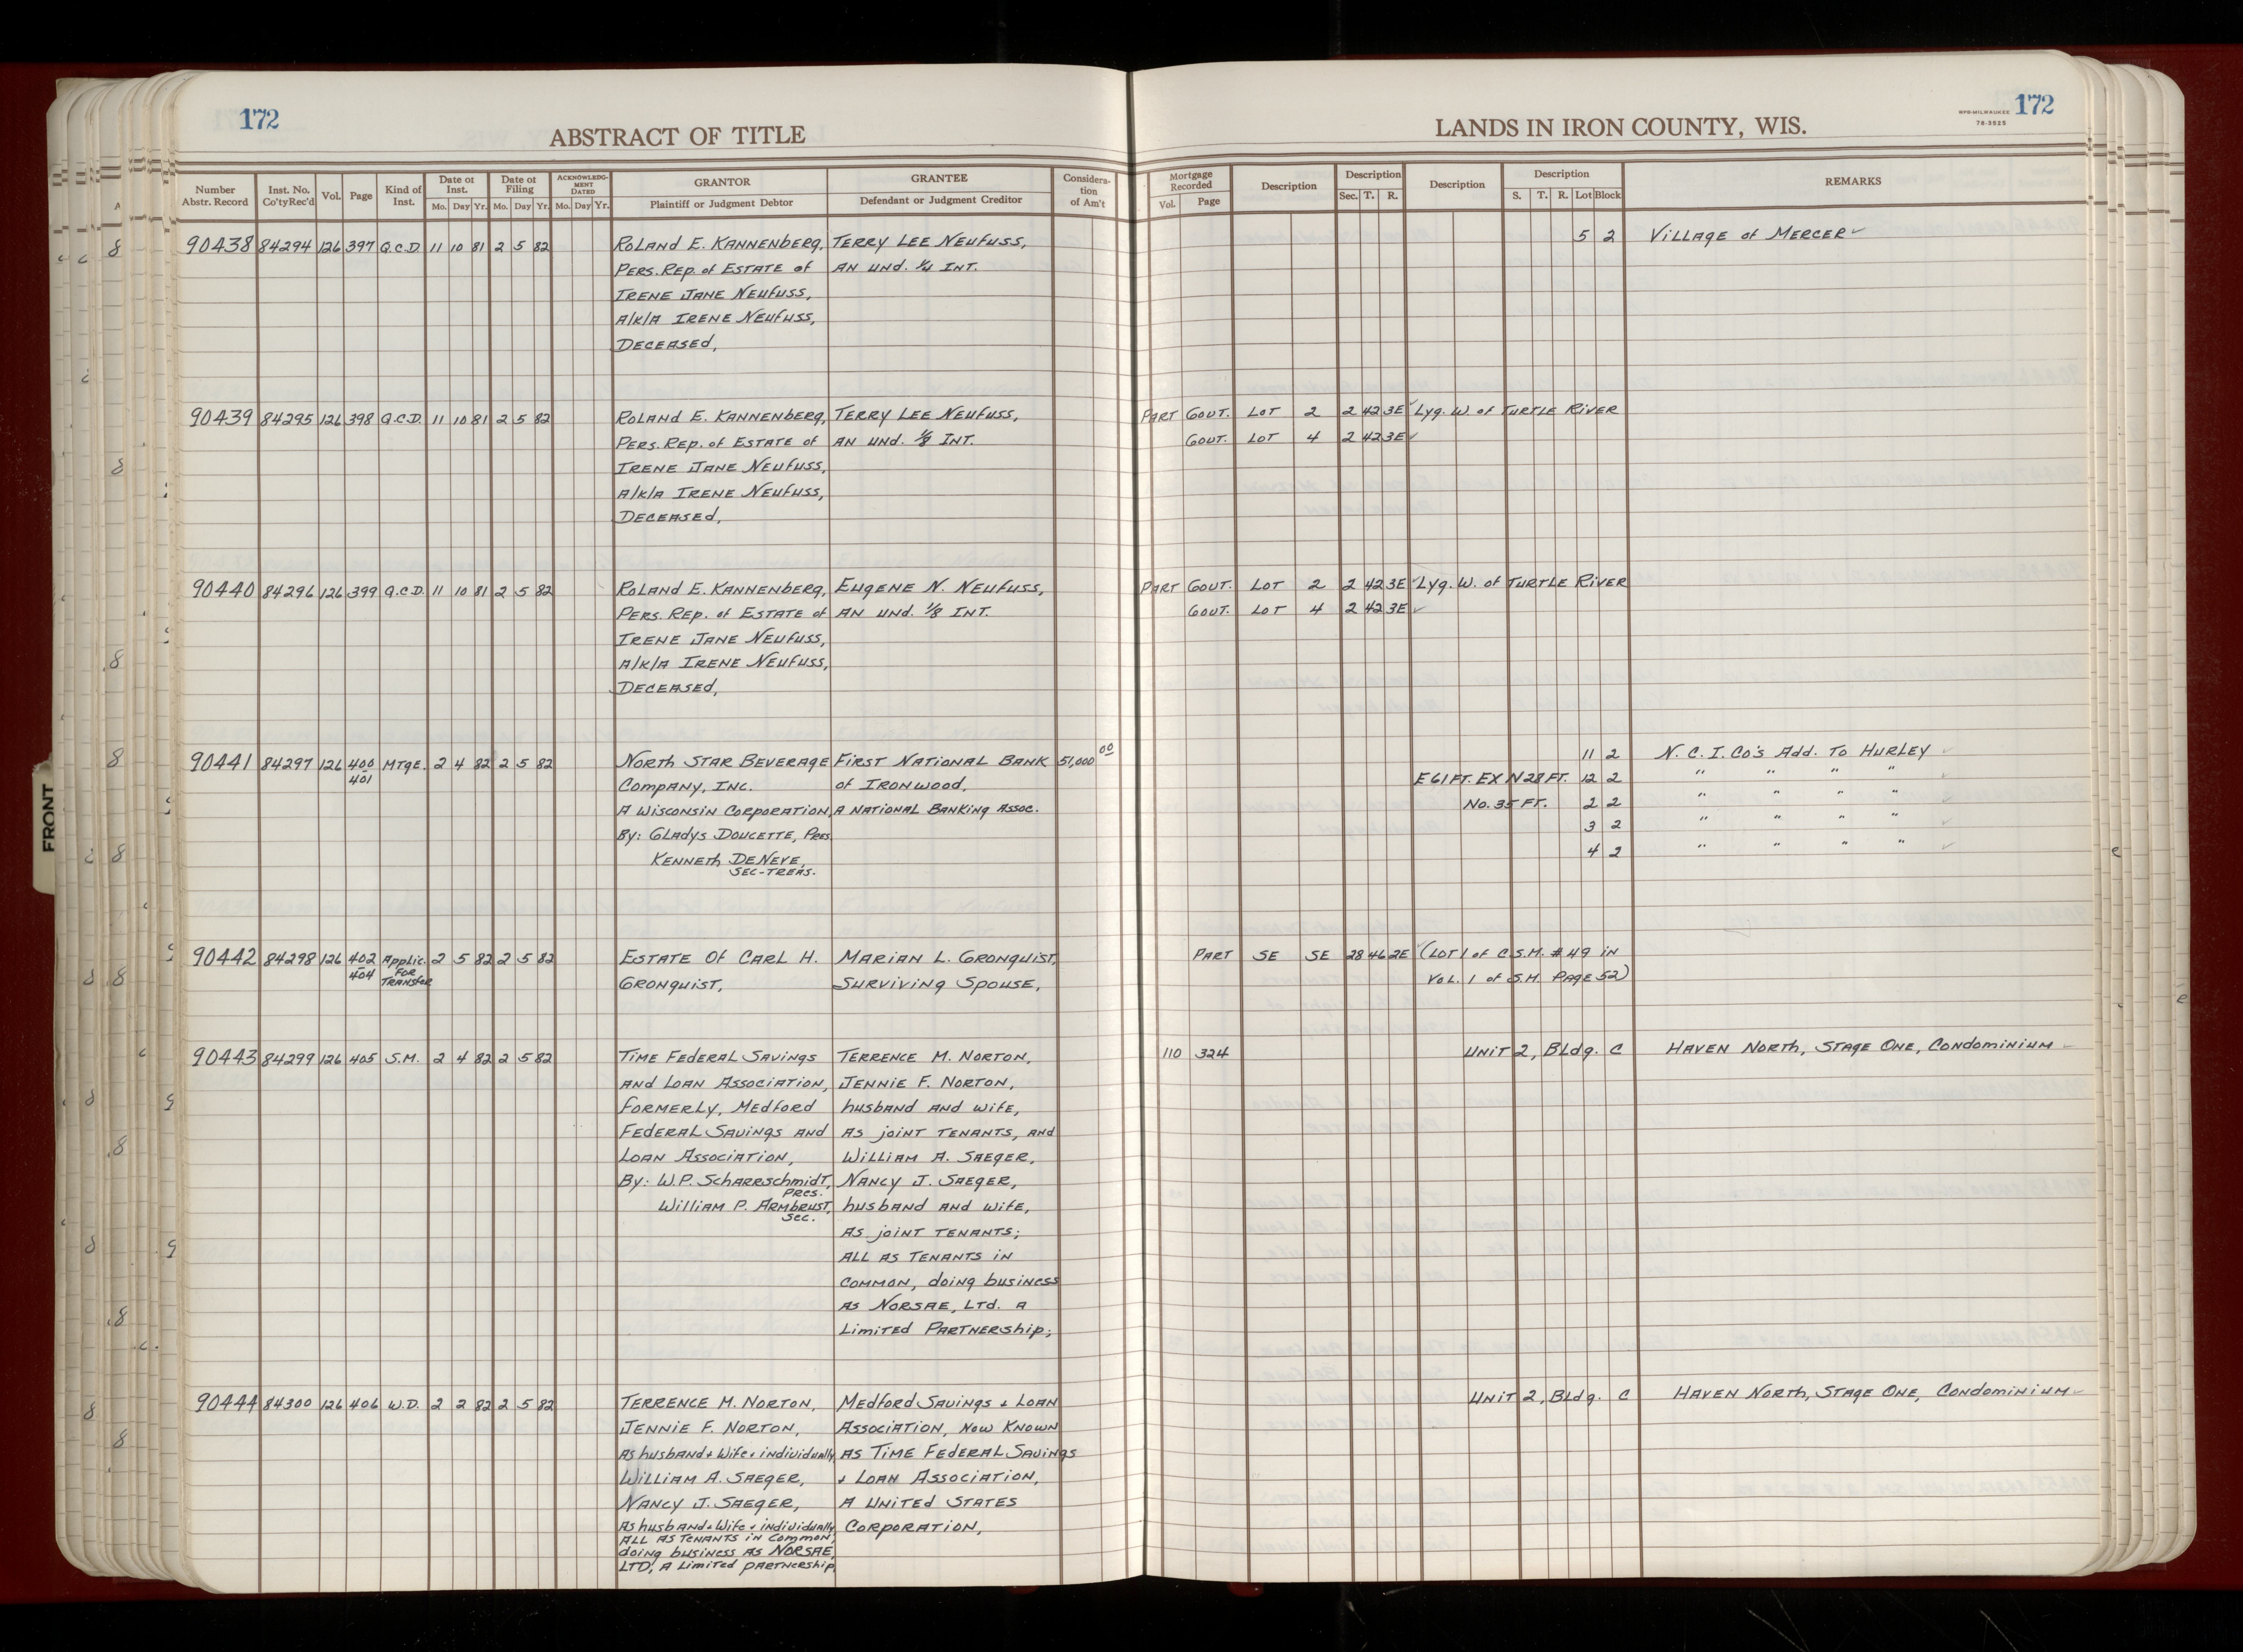 172
ABSTRACT OF TITLE
LANDS IN IRON COUNTY, WIS.
WPB-MILWAUKEE
78-3625
172
Number Abstr. Record | Inst. No. Co'ty Rec'd | Vol. | Page | Kind of Inst. | Date of Inst. Mo. Day Yr. | Date of Filing Mo. Day Yr. | ACKNOWLEDGMENT DATED Mo. Day Yr. | GRANTOR Plaintiff or Judgment Debtor | GRANTEE Defendant or Judgment Creditor | Consideration of Am't | Mortgage Recorded Vol. Page | Description | Description Sec. T. R. | Description | Description S. T. R. Lot Block | REMARKS
90438 84294 126 397 Q.C.D. 11 10 81 2 5 82 Roland E. Kannenberg, Terry Lee Neufuss, 5 2 Village of Mercer ✓
Pers. Rep. of Estate of An und. 1/4 Int.
Irene Jane Neufuss,
A/K/A Irene Neufuss,
Deceased,
90439 84295 126 398 Q.C.D. 11 10 81 2 5 82 Roland E. Kannenberg, Terry Lee Neufuss, Part Govt. Lot 2 2 42 3E ✓ Lyg. W. of Turtle River
Pers. Rep. of Estate of An und. 1/8 Int. Govt. Lot 4 2 42 3E ✓
Irene Jane Neufuss,
A/K/A Irene Neufuss,
Deceased,
90440 84296 126 399 Q.C.D. 11 10 81 2 5 82 Roland E. Kannenberg, Eugene N. Neufuss, Part Govt. Lot 2 2 42 3E ✓ Lyg. W. of Turtle River
Pers. Rep. of Estate of An und. 1/8 Int. Govt. Lot 4 2 42 3E ✓
Irene Jane Neufuss,
A/K/A Irene Neufuss,
Deceased,
90441 84297 126 400 401 Mtge. 2 4 82 2 5 82 North Star Beverage First National Bank 51,000 00 11 2 N. C. I. Co's Add. To Hurley ✓
Company, Inc. of Ironwood, E 61 Ft. Ex N 28 Ft. 12 2 " " " " ✓
A Wisconsin Corporation, A National Banking Assoc. No. 35 Ft. 2 2 " " " " ✓
By: Gladys Doucette, Pres. 3 2 " " " " ✓
Kenneth DeNeve, 4 2 " " " " ✓
Sec-Treas.
90442 84298 126 402 404 Applic. For Transfer 2 5 82 2 5 82 Estate Of Carl H. Marian L. Gronquist, Part SE SE 28 46 2E ✓ (Lot 1 of C.S.M. #49 in
Gronquist, Surviving Spouse, Vol. 1 of S.M. Page 52)
90443 84299 126 405 S.M. 2 4 82 2 5 82 Time Federal Savings Terrence M. Norton, 110 324 Unit 2, Bldg. C Haven North, Stage One, Condominium ✓
and Loan Association, Jennie F. Norton,
formerly, Medford husband and wife,
Federal Savings and as joint tenants, and
Loan Association, William A. Saeger,
By: W.P. Scharrschmidt, Nancy J. Saeger,
Pres.
William P. Armbrust, husband and wife,
Sec.
as joint tenants;
all as tenants in
common, doing business
as Norsae, Ltd. a
Limited Partnership;
90444 84300 126 406 W.D. 2 2 82 2 5 82 Terrence M. Norton, Medford Savings & Loan Unit 2, Bldg. C Haven North, Stage One, Condominium ✓
Jennie F. Norton, Association, Now Known
As husband & Wife & individually as Time Federal Savings
William A. Saeger, & Loan Association,
Nancy J. Saeger, A United States
As husband & Wife & individually Corporation,
All as tenants in common,
doing business as Norsae,
LTD, A Limited Partnership,
FRONT